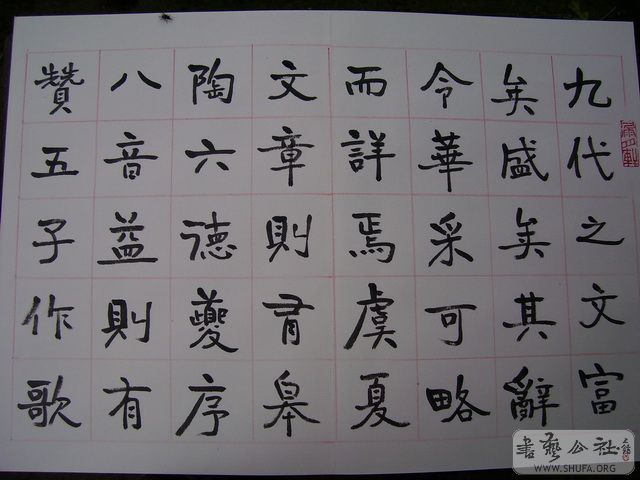 九代之文富
矣盛矣其辭
令華采可略
而詳焉虞夏
文章則有皋
陶六德夔序
八音益則有
贊五子作歌
書藝公社
WWW.SHUFA.ORG